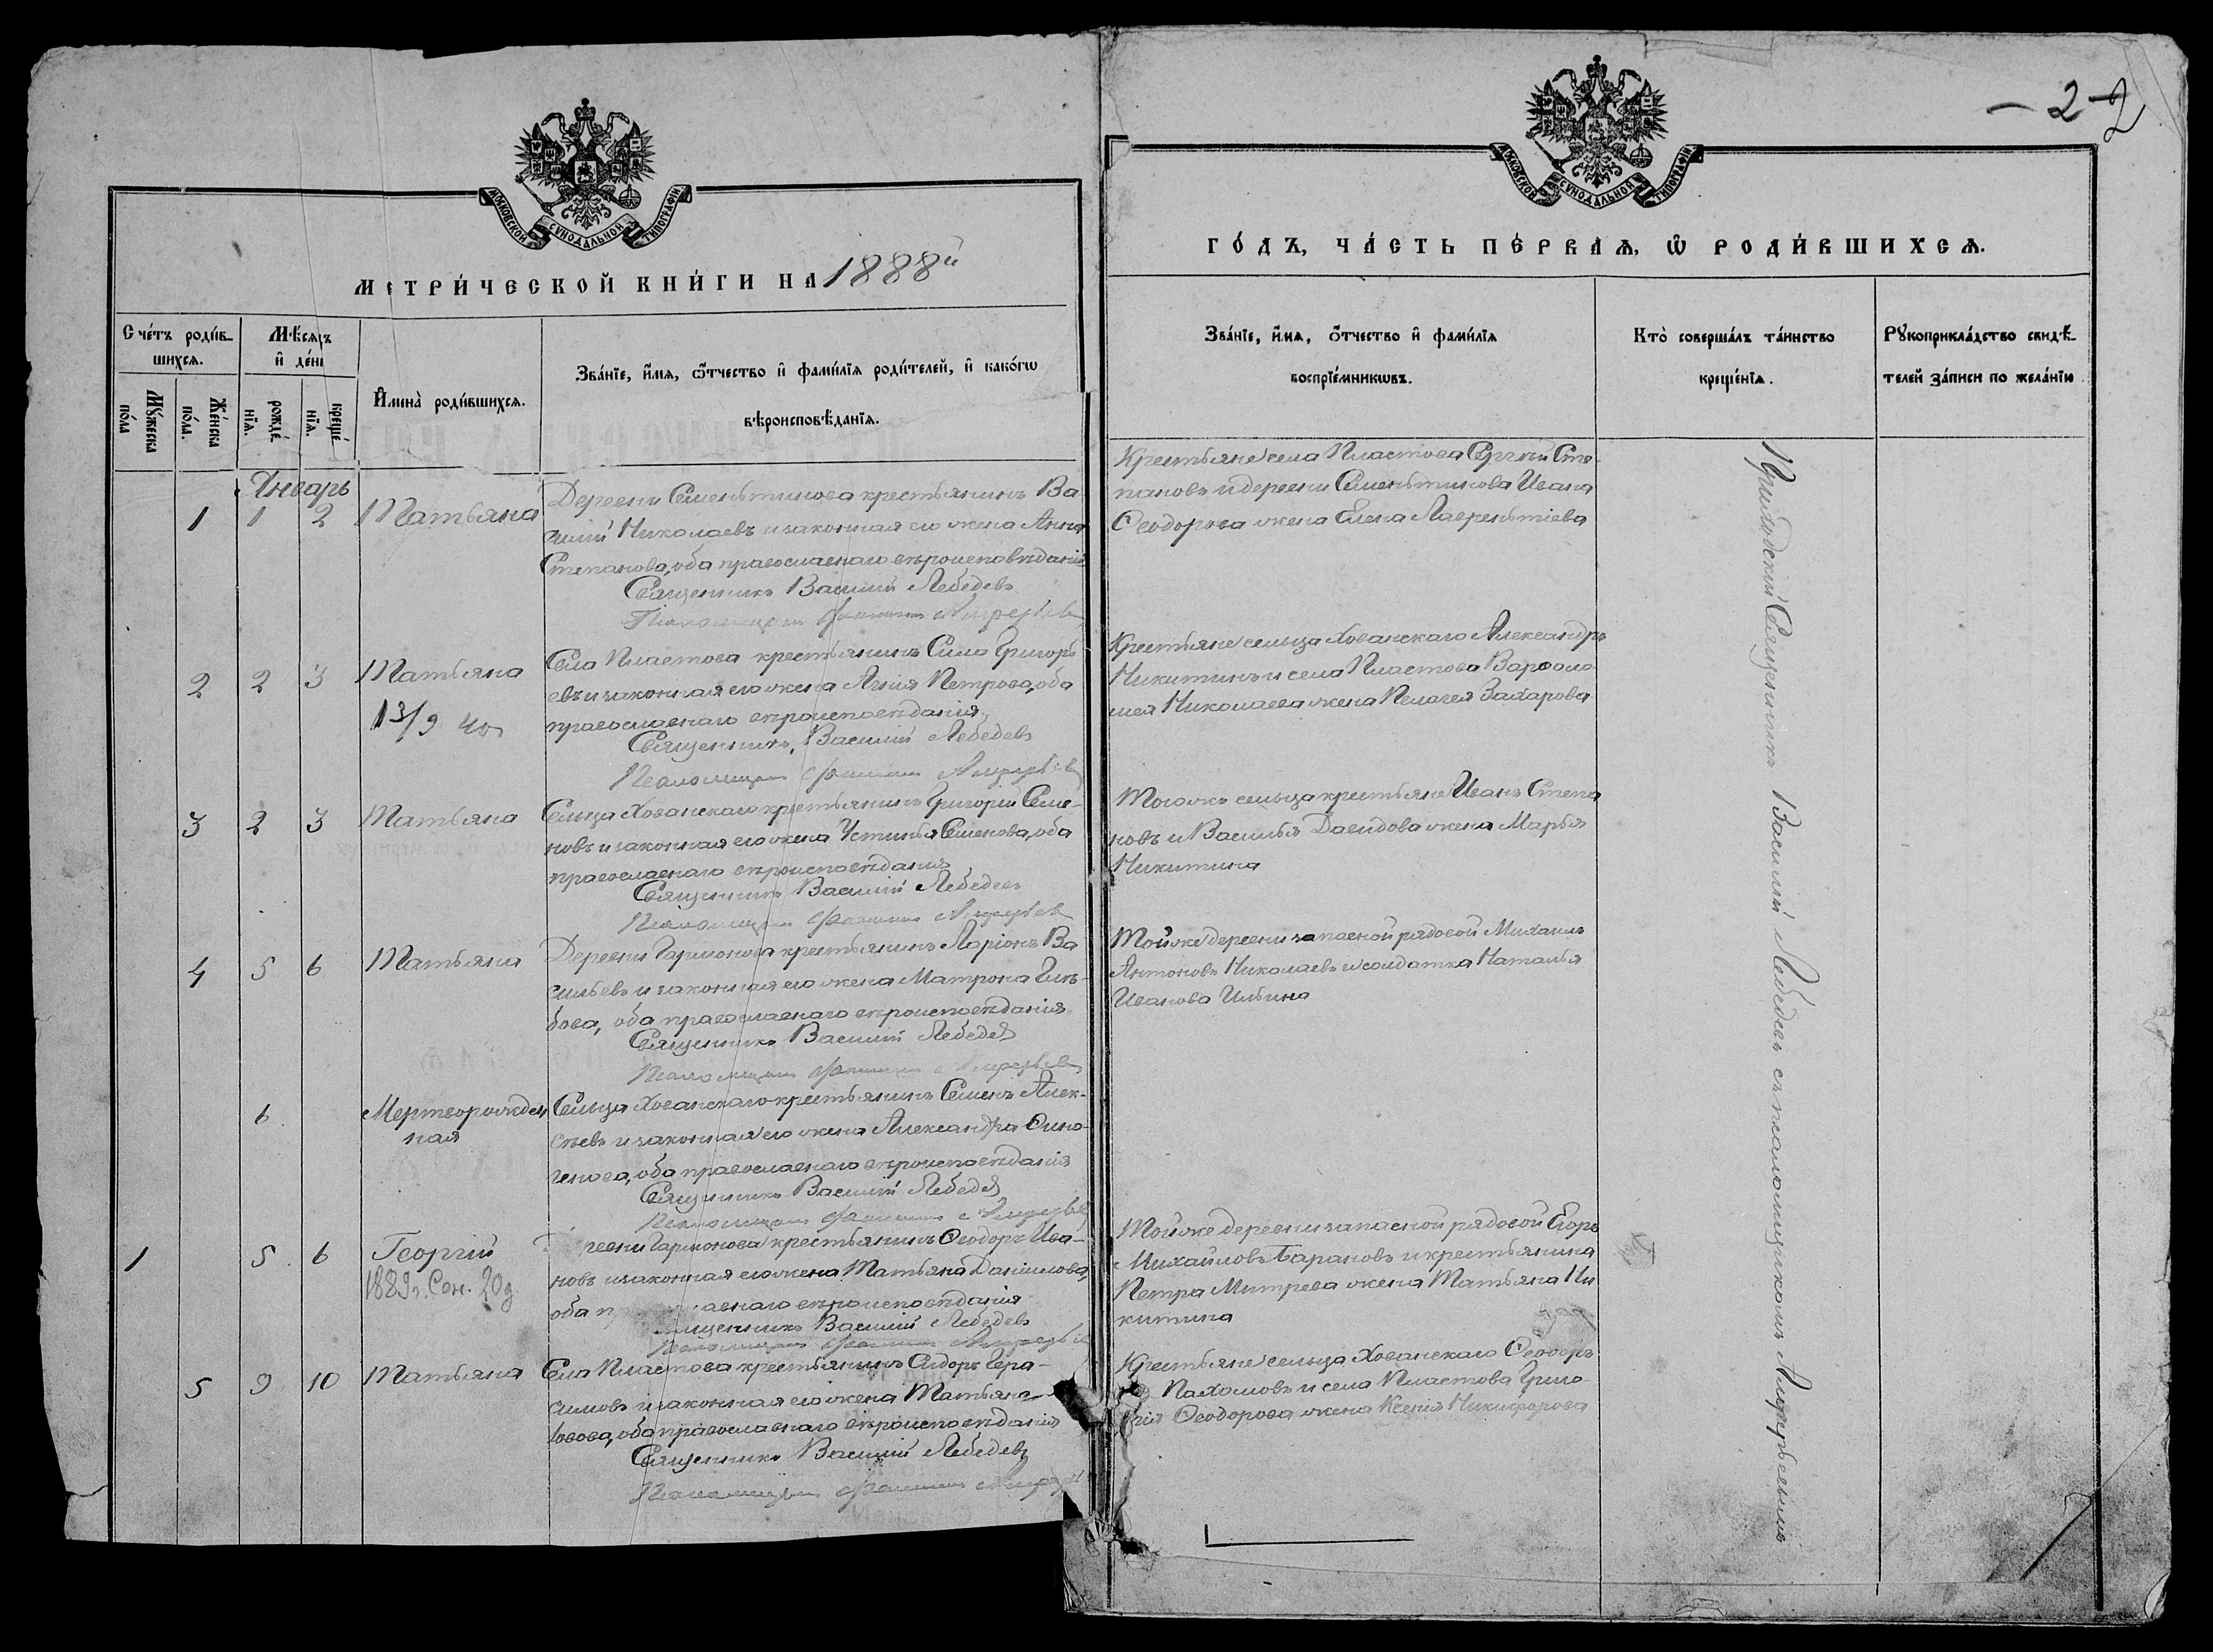 МОСКОВСКОЙ СѴНОДАЛЬНОЙ ТИПОГРАФІИ
МЕТРИ́ЧЕСКОЙ КНИ́ГИ НА 1888й
Счéтъ роди́в-
шихсѧ.
Мꙋ́жеска
по́ла
Же́нска
по́ла.
Мѣ́сѧцъ
и҆ де́нь
рожде́
нїѧ.
креще́
нїѧ.
И҆мена̀ роди́вшихсѧ.
Зва́нїе, и҆́мѧ, ѻ҆́тчество и҆ фами́лїѧ роди́телей, и҆ како́гѡ
вѣроисповѣ́данїѧ.
Январь
1 1 2 Татьяна
Деревни Семеньтинова крестьянинъ Ва
силій Николаевъ и законная его жена Анна
Степанова, оба православнаго вѣроисповѣданія
Священникъ Василій Лебедевъ
Псаломщикъ
2 2 3 Татьяна
13/9 40
Села Пластова крестьянинъ Сила Григорь
евъ и законная его жена Агнія Петрова, оба
православнаго вѣроисповѣданія.
Священникъ, Василій Лебедевъ
Псаломщикъ
3 2 3 Татьяна
Сельца Хованскаго крестьянинъ Григорій Семе-
новъ и законная его жена Устинья Семенова, оба
православнаго вѣроисповѣданія
Священникъ Василій Лебедевъ
Псаломщикъ
4 5 6 Татьяна
Деревни Гармонова крестьянинъ Ларіонъ Ва
сильевъ и законная его жена Матрона Глѣ-
бова, оба православнаго вѣроисповѣданія
Священникъ Василій Лебедев
Псаломщикъ
6 Мертворожден
ная
Сельца Хованскаго крестьянинъ Семенъ Алек-
сѣевъ и законная его жена Александра Фино-
генова, оба православнаго вѣроисповѣданія
Священникъ Василій Лебедев
Псаломщикъ
1 5 6 Георгій
1889 г. Сен. 20д
ревни Гармонова крестьянинъ Ѳеодоръ Ива-
новъ и законная его жена Татьяна Даниилова,
оба п авнаго вѣроисповѣданія
щенникъ Василій Лебедевъ
Псаломщикъ
5 9 10 Татьяна
Села Пластова крестьянинъ Сидоръ Гера-
симовъ и законная его жена Татьяна
оба православнаго вѣроисповѣданія
Священникъ Василій Лебедевъ
Псаломщикъ
- 2 - 2
МОСКОВСКОЙ СѴНОДАЛЬНОЙ ТИПОГРАФІИ
ГО́ДЪ, ЧА́СТЬ ПЕ́РВАѦ, Ѡ҆ РОДИ́ВШИХСѦ.
Зва́нїе, и҆́мѧ, ѻ҆́тчество и҆ фами́лїѧ
воспрїе́мникѡвъ.
Кто̀ соверша́лъ та́инство
креще́нїѧ.
Рꙋкоприкла́дство свидѣ́-
телей за́писи по жела́нїю.
Крестьяне села Пластова Сергѣй Сте-
пановъ и деревни Семеньтинова Ивана
Ѳеодорова жена Елена Лаврентіева
Крестьяне сельца Хованскаго Александръ
Никитинъ и села Пластова Варѳоло-
мея Николаева жена Пелагея Захарова
Тогожъ сельца крестьяне Иванъ Степа
новъ и Василья Давидова жена Марья
Никитина
Тойже деревни запасной рядовой Михаилъ
Антоновъ Николаевъ и солдатка Наталья
Иванова Ильина
Тойже деревни запасной рядовой Егоръ
Михайловъ Барановъ и крестьянина
Петра Митрева жена Татьяна Ни
китина
Крестьяне сельца Хованскаго Ѳеодоръ
Пахомовъ и села Пластова Григо-
рія Ѳеодорова жена Ксенія Никифорова
Приходскій Священникъ Василій Лебедевъ съ псаломщикомъ Алферьевымъ